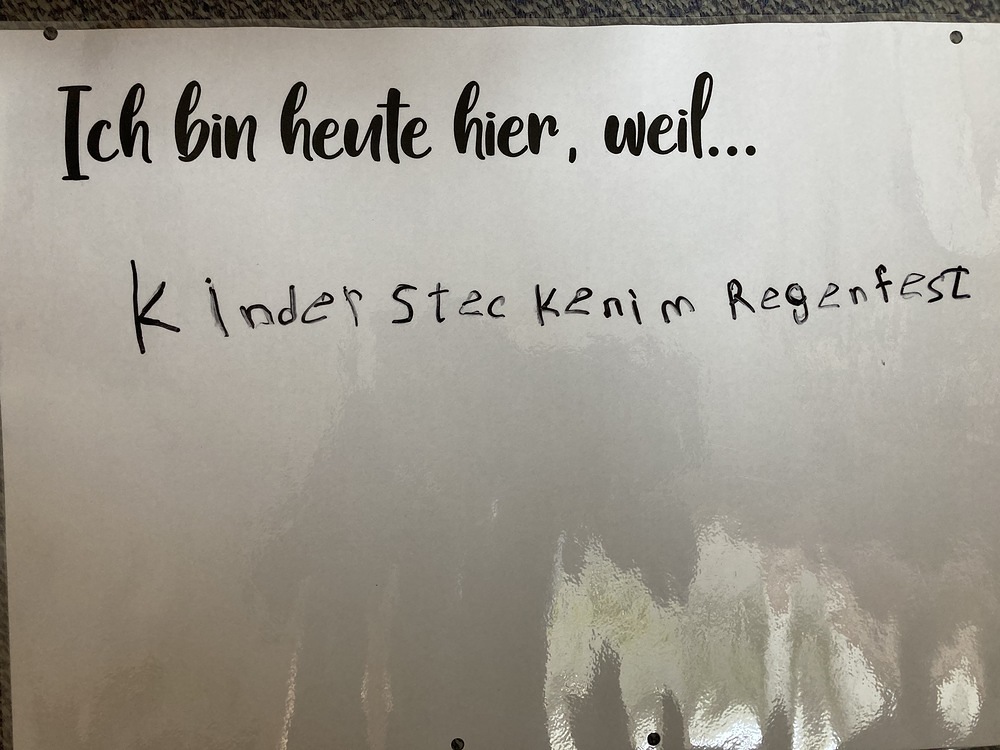 Ich bin heute hier, weil...
Kinder stecken im Regenfest